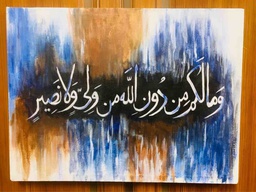 وَمَا لَكُم مِّن دُونِ اللَّهِ مِن وَلِيٍّ وَلَا نَصِيرٍ